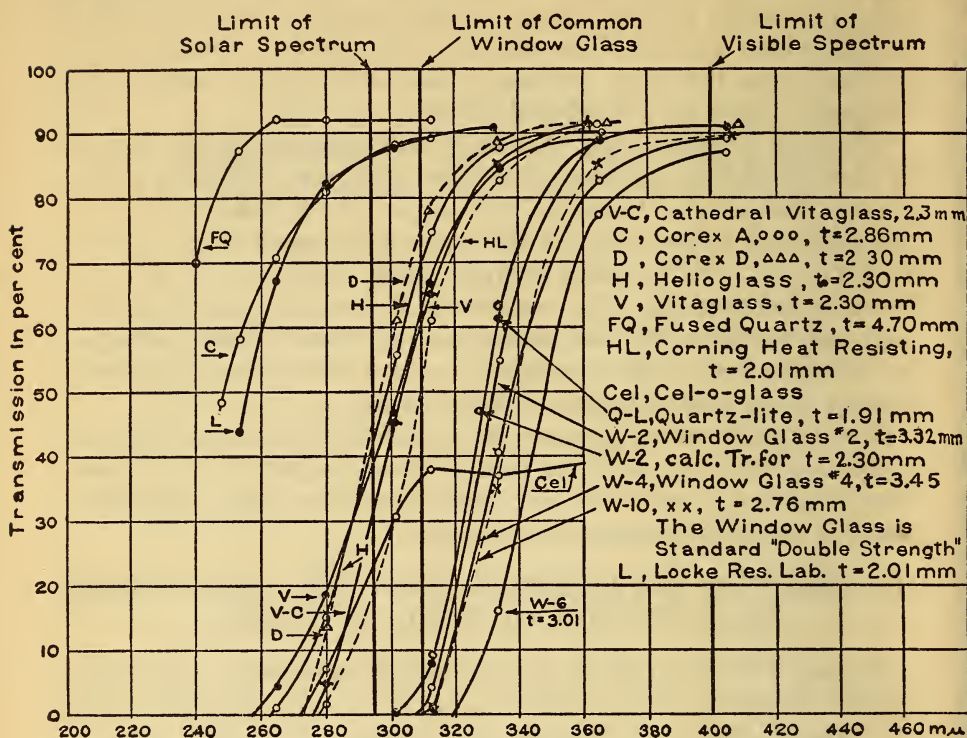 Limit of Solar Spectrum
Limit of Common Window Glass
Limit of Visible Spectrum
Transmission in per cent
100
90
80
70
60
50
40
30
20
10
0
FQ
C
L
D
H
HL
V
H
V
V-C
D
Cel
W-6
t=3.01
V-C, Cathedral Vitaglass, 2.3mm
C, Corex A, ooo, t=2.86mm
D, Corex D, △△△, t=2 30mm
H, Helioglass, t=2.30mm
V, Vitaglass, t=2.30mm
FQ, Fused Quartz, t=4.70mm
HL, Corning Heat Resisting,
t=2.01mm
Cel, Cel-o-glass
Q-L, Quartz-lite, t=1.91mm
W-2, Window Glass #2, t=3.32mm
W-2, calc. Tr. for t=2.30mm
W-4, Window Glass #4, t=3.45
W-10, xx, t=2.76mm
The Window Glass is
Standard "Double Strength"
L, Locke Res. Lab. t=2.01mm
200 220 240 260 280 300 320 340 360 380 400 420 440 460 mμ